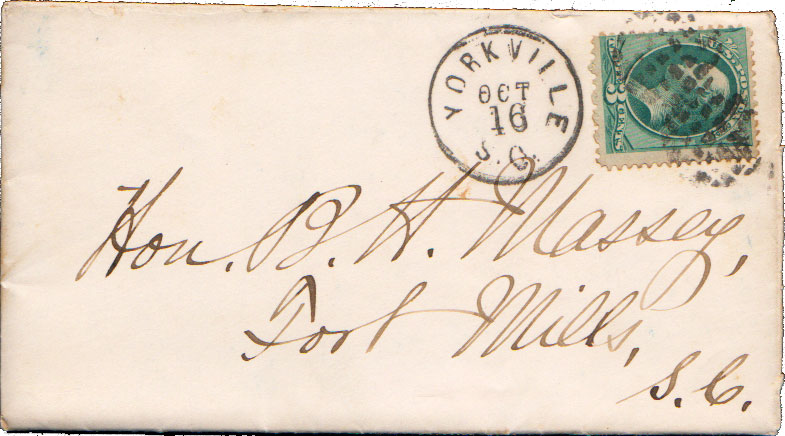 YORKVILLE
OCT
16
S. C.
3 CENTS
Hon. B. H. Massey,
Fort Mills,
S. C.